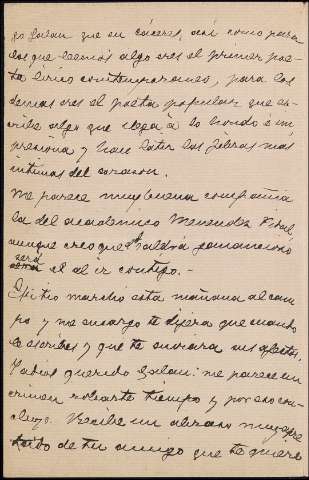 Galan que en Cáceres, así como para
los que leemos algo eres el primer poe-
ta lírico contemporaneo, para los
demas eres el poeta popular que es-
cribe algo que llega á lo hondo é im
presiona y hace latir las fibras mas
intimas del corazon.
Me parece muy buena compañia
la del academico Menendez Pidal
aunque creo que saldra ganancioso
será el al ir contigo.-
El tio marchó esta mañana al cam
po y me encargo te dijera que cuando
le escribes y que te enviara sus afectos.
Y adios querido Galan: me parece un
crimen robarte tiempo y por eso con-
cluyo. Recibe un abrazo muy apre
tado de tu amigo que te quiere